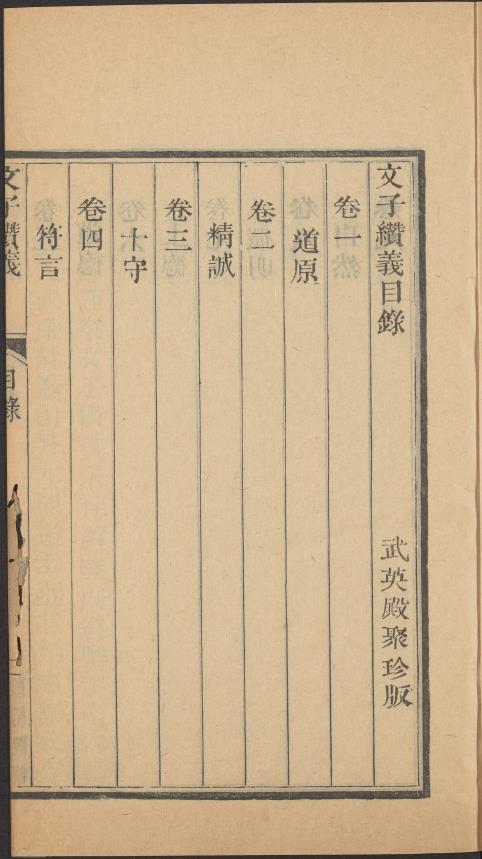 文子纘義目錄
武英殿聚珍版
卷一
道原
卷二
精誠
卷三
十守
卷四
符言
文子纘義
目錄